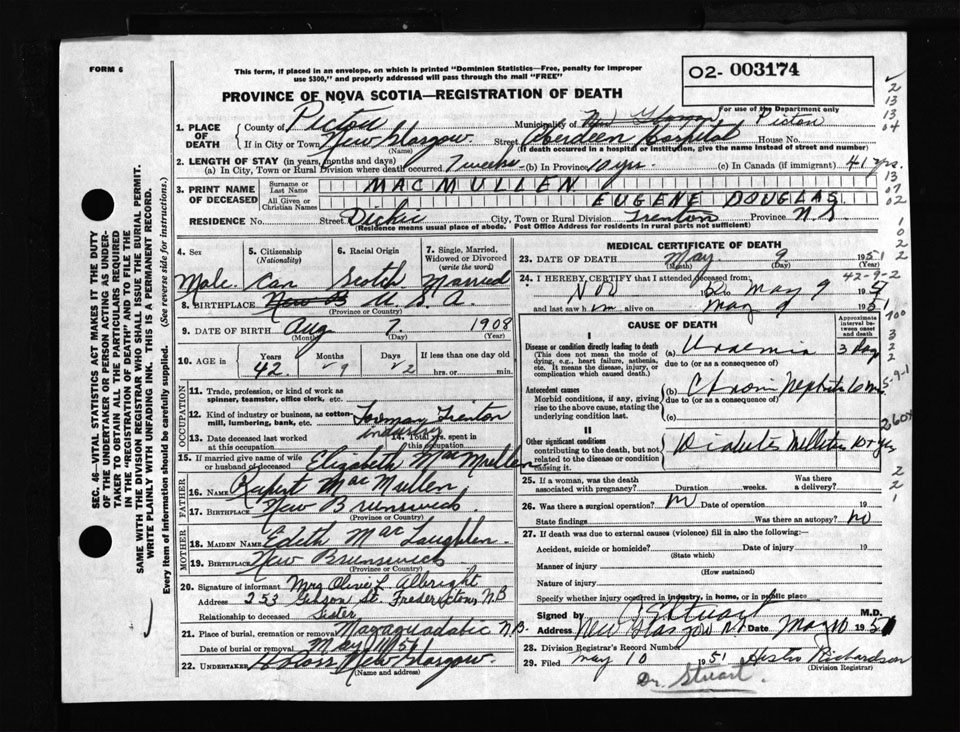 FORM 6
This form, if placed in an envelope, on which is printed "Dominion Statistics—Free, penalty for improper
use $300," and properly addressed will pass through the mail "FREE"
02- 003174
For use of the Department only
PROVINCE OF NOVA SCOTIA—REGISTRATION OF DEATH
1. PLACE OF DEATH
County of Pictou Municipality of Pictou
If in City or Town New Glasgow Street Aberdeen Hospital House No.
(Name) (If death occurred in a hospital or institution, give the name instead of street and number)
2. LENGTH OF STAY (in years, months and days)
(a) In City, Town or Rural Division where death occurred 7 weeks (b) In Province 10 yrs. (c) In Canada (if immigrant) 41 yrs.
3. PRINT NAME OF DECEASED
Surname or Last Name MACMULLEN
All Given or Christian Names EUGENE DOUGLAS
RESIDENCE No. Street Dickie City, Town or Rural Division Trenton Province N.S.
(Residence means usual place of abode. Post Office Address for residents in rural parts not sufficient)
4. Sex Male
5. Citizenship (Nationality) Can
6. Racial Origin Scotch
7. Single, Married, Widowed or Divorced (write the word) Married
8. BIRTHPLACE New B U.S.A.
(Province or Country)
9. DATE OF BIRTH Aug 7. 1908
(Month) (Day) (Year)
10. AGE in Years 42 Months 9 Days 2 If less than one day old
hrs. or min.
OCCUPATION
11. Trade, profession, or kind of work as
spinner, teamster, office clerk, etc.
12. Kind of industry or business, as cotton-
mill, lumbering, bank, etc. Foreman Trenton
industry
13. Date deceased last worked
at this occupation
14. Total yrs. spent in
this occupation
15. If married give name of wife
or husband of deceased Elizabeth MacMullen
FATHER
16. NAME Rupert MacMullen
17. BIRTHPLACE New Brunswick
(Province or Country)
MOTHER
18. MAIDEN NAME Edith MacLaughlin.
19. BIRTHPLACE New Brunswick
(Province or Country)
20. Signature of informant Mrs Olive L. Albright
Address 253 Gibson St. Fredericton, N.B
Relationship to deceased Sister
21. Place of burial, cremation or removal Magaguadavic N.B.
Date of burial or removal May 11/51
22. UNDERTAKER New Glasgow.
(Name and address)
MEDICAL CERTIFICATE OF DEATH
23. DATE OF DEATH May 9 1951
(Month) (Day) (Year)
24. I HEREBY CERTIFY that I attended deceased from: 42-9-2
Nov May 9 1951
and last saw him alive on May 9 1951
CAUSE OF DEATH
Approximate interval between onset and death
I
Disease or condition directly leading to death
(This does not mean the mode of dying, e.g., heart failure, asthenia, etc. It means the disease, injury, or complication which caused death.)
(a) Uraemia 3 days
due to (or as a consequence of)
Antecedent causes
Morbid conditions, if any, giving rise to the above cause, stating the underlying condition last.
(b) Chronic Nephritis 6 mos
due to (or as a consequence of)
(c)
II
Other significant conditions
contributing to the death, but not related to the disease or condition causing it.
Diabetes Mellitus
25. If a woman, was the death
associated with pregnancy? Duration weeks. Was there a delivery?
26. Was there a surgical operation? no Date of operation 19
State findings Was there an autopsy? no
27. If death was due to external causes (violence) fill in also the following:—
Accident, suicide or homicide? Date of injury 19
(State which)
Manner of injury
(How sustained)
Nature of injury
Specify whether injury occurred in industry, in home, or in public place
Signed by Stuart M.D.
Address New Glasgow N.S. Date May 10 1951
28. Division Registrar's Record Number
29. Filed May 10 1951 Hester Richardson
(Division Registrar)
Dr. Stuart.
SEC. 46—VITAL STATISTICS ACT MAKES IT THE DUTY
OF THE UNDERTAKER OR PERSON ACTING AS UNDER-
TAKER TO OBTAIN ALL THE PARTICULARS REQUIRED
IN THE "REGISTRATION OF DEATH" AND TO FILE THE
SAME WITH THE DIVISION REGISTRAR WHO SHALL ISSUE THE BURIAL PERMIT.
WRITE PLAINLY WITH UNFADING INK. THIS IS A PERMANENT RECORD.
Every item of information should be carefully supplied. (See reverse side for instructions.)